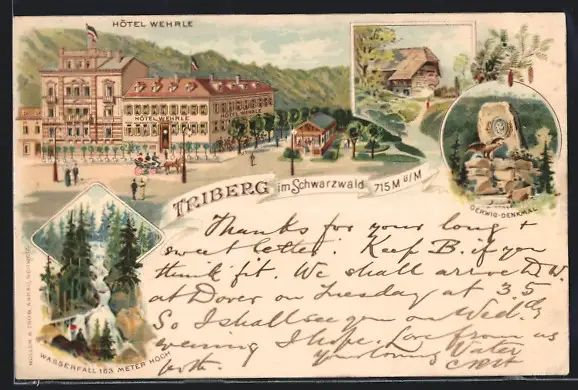 HÔTEL WEHRLE
HÔTEL WEHRLE
TRIBERG im Schwarzwald 715 M ü/M
GERWIG-DENKMAL
WASSERFALL 163 METER HOCH
Thanks for your long &
sweet letter. Keep B. if you
think fit. We shall arrive D.V.
at Dover on Tuesday at 3.35
So I shall see you on Wedˢᵈʸ
evening I hope. Love from us
both. Your loving